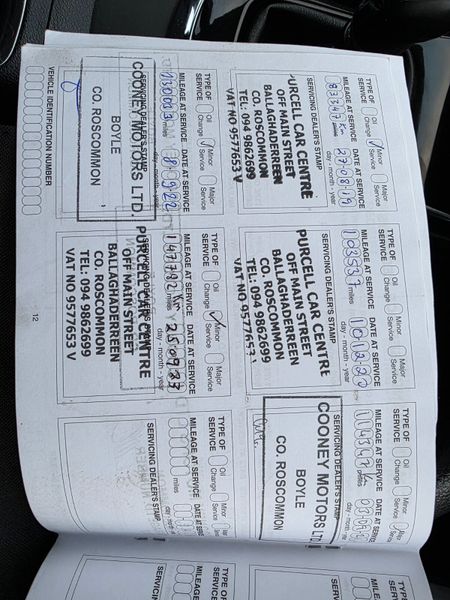 TYPE OF SERVICE Oil Change Minor Service Major Service
MILEAGE AT SERVICE DATE AT SERVICE
83347 Km 270819
miles day - month - year
SERVICING DEALER'S STAMP
PURCELL CAR CENTRE
OFF MAIN STREET
BALLAGHADERREEN
CO. ROSCOMMON
TEL: 094 9862699
VAT NO 9577653 V
TYPE OF SERVICE Oil Change Minor Service Major Service
MILEAGE AT SERVICE DATE AT SERVICE
103537 101220
miles day - month - year
SERVICING DEALER'S STAMP
PURCELL CAR CENTRE
OFF MAIN STREET
BALLAGHADERREEN
CO. ROSCOMMON
TEL: 094 9862699
VAT NO 9577653
TYPE OF SERVICE Oil Change Minor Service
MILEAGE AT SERVICE DATE AT SERV
miles day - month - year
SERVICING DEALER'S STAMP
COONEY MOTORS LT
BOYLE
CO. ROSCOMMON
TYPE OF SERVICE Oil Change Minor Service Major Service
MILEAGE AT SERVICE DATE AT SERVICE
130093 80922
miles day - month - year
SERVICING DEALER'S STAMP
COONEY MOTORS LTD.
BOYLE
CO. ROSCOMMON
TYPE OF SERVICE Oil Change Minor Service Major Service
MILEAGE AT SERVICE DATE AT SERVICE
147792 Km 250923
day - month - year
SERVICING DEALER'S STAMP
PURCELL CAR CENTRE
OFF MAIN STREET
BALLAGHADERREEN
CO. ROSCOMMON
TEL: 094 9862699
VAT NO 9577653 V
TYPE OF SERVICE Oil Change Minor Service
MILEAGE AT SERVICE DATE AT SERV
miles day - mont
SERVICING DEALER'S STAMP
VEHICLE IDENTIFICATION NUMBER
12
TYPE OF SERVICE
MILEAGE AT
SERVICING
TYPE OF SERVICE
MILEAGE